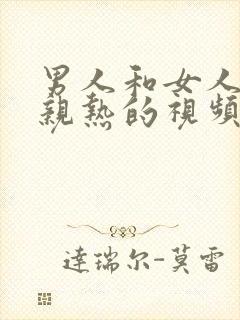 男人和女人
親熱的視頻
達瑞尔-莫雷